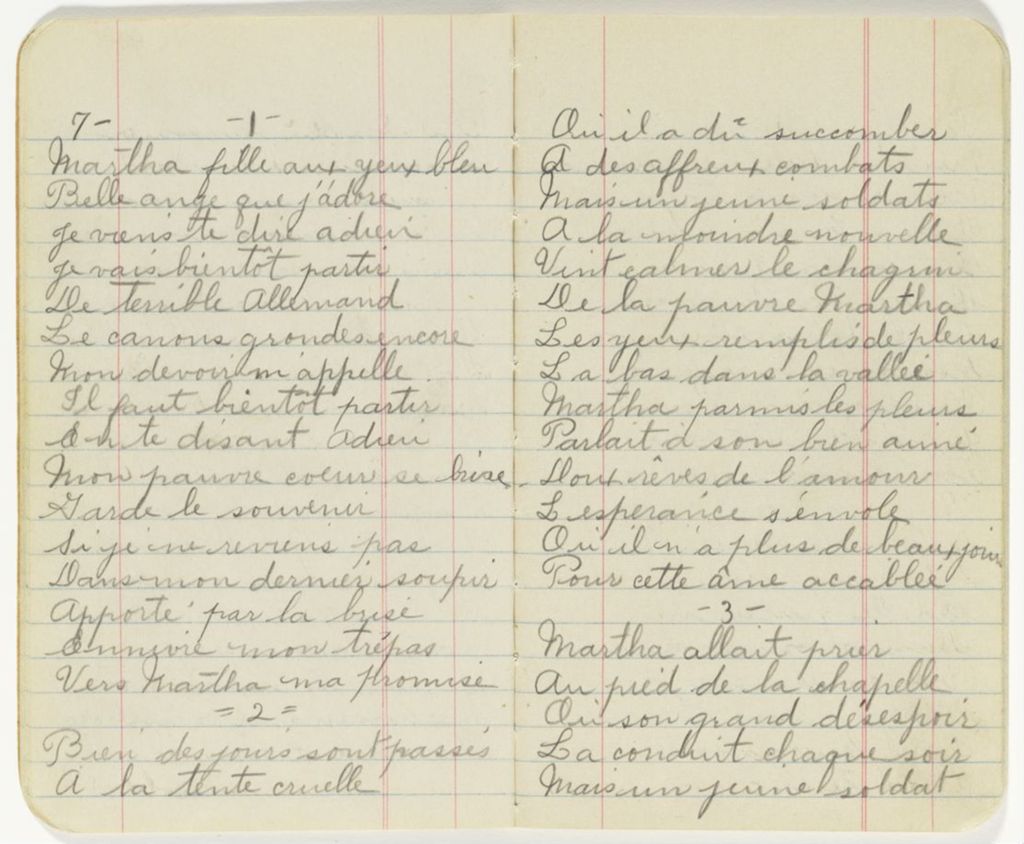 7- -1-
Martha fille aux yeux bleu
Belle ange que j'adore
je viens te dire adieu
je vais bientôt partir
De terrible Allemand
Le canons grondes encore
Mon devoir m'appelle
Il faut bientôt partir
En te disant Adieu
Mon pauvre coeur se brise
Garde le souvenir
Si je ne reviens pas
Dans mon dernier soupir
Apporté par la brise
Ennivré mon trépas
Vers Martha ma promise
=2=
Bien des jours sont passés
A la tente cruelle
Qu'il a dû succomber
A des affreux combats
Mais un jeune soldats
A la moindre nouvelle
Vint calmer le chagrin
De la pauvre Martha
Les yeux remplis de pleurs
La bas dans la vallée
Martha parmis les pleurs
Parlait à son bien aimé
Doux rêves de l'amour
L'esperance s'envole
Qu'il n'a plus de beaux jours
Pour cette âme accableé
-3-
Martha allait prier
Au pied de la chapelle
Ou son grand désespoir
La conduit chaque soir
Mais un jeune soldat